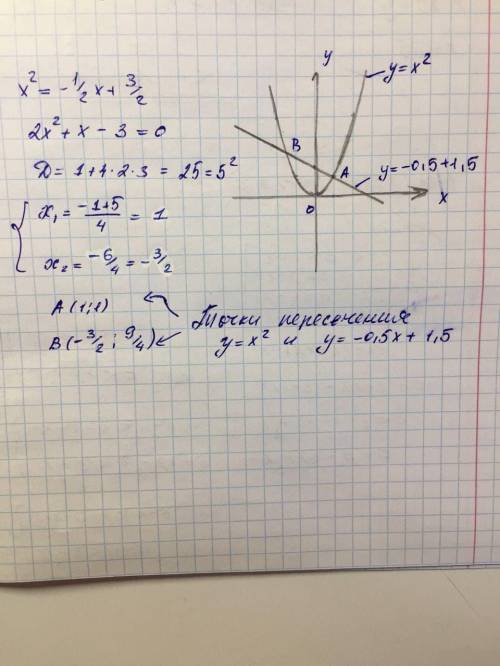 x² = -1/2 x + 3/2
2x² + x - 3 = 0
D = 1 + 4·2·3 = 25 = 5²
x₁ = -1+5/4 = 1
x₂ = -6/4 = -3/2
A (1;1)
B (-3/2; 9/4)
Точки пересечения
y = x² и y = -0,5x + 1,5
y
y = x²
B
A
y = -0,5+1,5
O
x